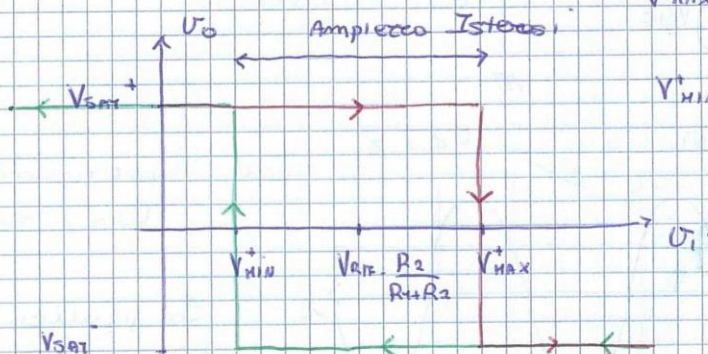 Vo
Ampiezza Isteresi
VSAT+
V+MIN
V+MIN
VRIF. R2
R1+R2
V+MAX
Vi
VSAT-